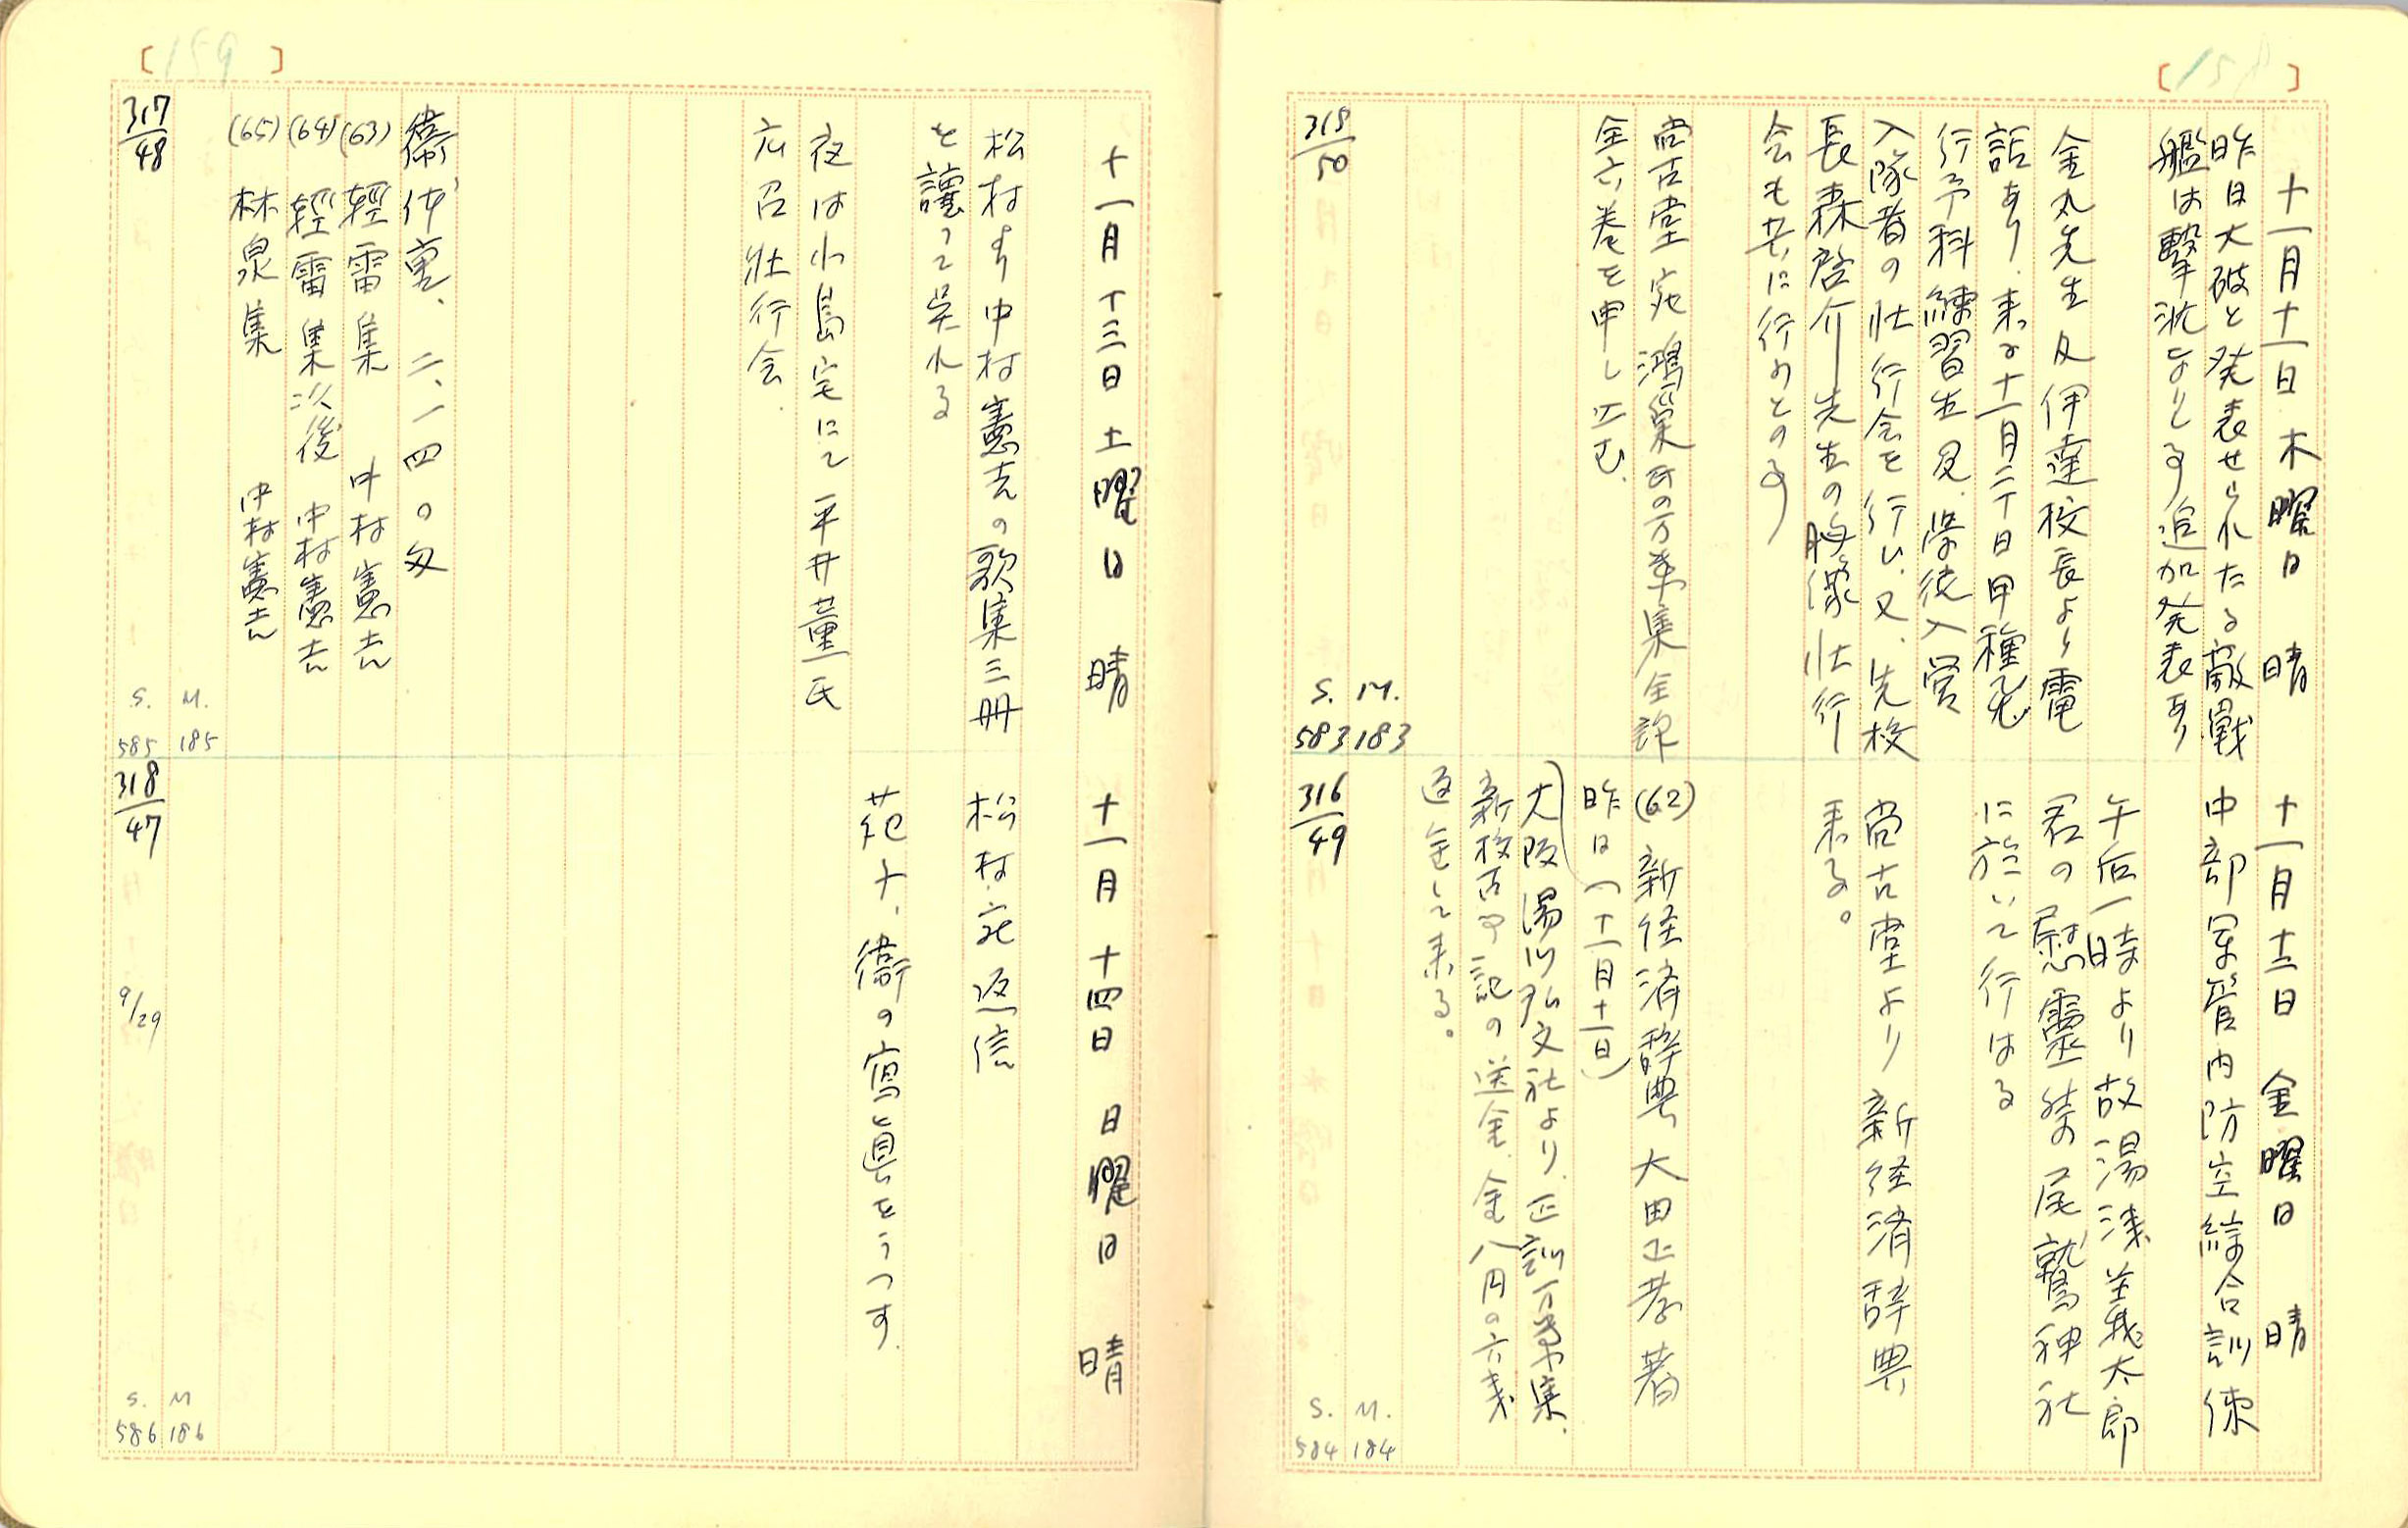 [158]
十一月十一日 木曜日 晴
昨日大破と発表せられたる敵戦
艦は撃沈なりしる追加発表あり
金丸先生及伊達校長より電
話あり、来る十一月二十日甲種飛
行予科練習生及、学徒入営
入隊者の壮行会を行ひ、又、先校
長森啓介先生の胸像壮行
会も共に行ふとの事
尚古堂宛 鴻巣氏の万葉集全釈
全六巻を申し込む、
315/50
S. M.
583 183
十一月十二日 金曜日 晴
中部軍管内防空綜合訓練
午后一時より故湯浅義太郎
君の慰靈祭の尾鷲神社
に於いて行はる
尚古堂より 新経済辞典
来る。
(62) 新経済辞典 大田正孝著
昨日(十一月十一日)
大阪湯川弘文社より、正訓万葉集、
新校古事記の送金、金八円の六表
返金して来る。
316/49
S. M.
584 184
[159]
十一月十三日 土曜日 晴
松村より中村憲吉の歌集三冊
を讓って呉れる
夜は小島宅にて平井薫氏
応召壮行会.
衞体重、二、一四〇匁
(63) 輕雷集 中村憲吉
(64) 輕雷集以後 中村憲吉
(65) 林泉集 中村憲吉
317/48
S. M.
585 185
十一月十四日 日曜日 晴
松村宛返信
苑子、衞の寫眞をうつす.
318/47
9/29
S. M
586 186